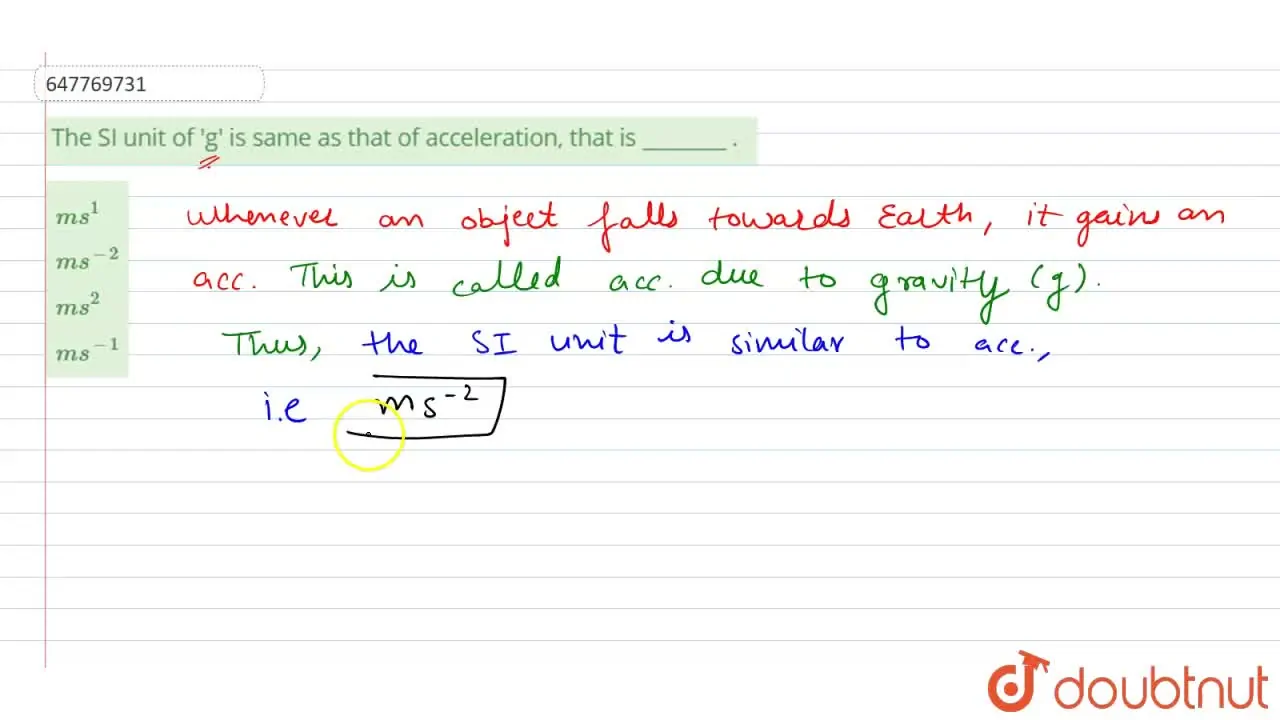 647769731
The SI unit of 'g' is same as that of acceleration, that is ________ .
ms¹
ms⁻²
ms²
ms⁻¹
Whenever an object falls towards Earth, it gains an
acc. This is called acc. due to gravity (g).
Thus, the SI unit is similar to acc.,
i.e ms⁻²
doubtnut